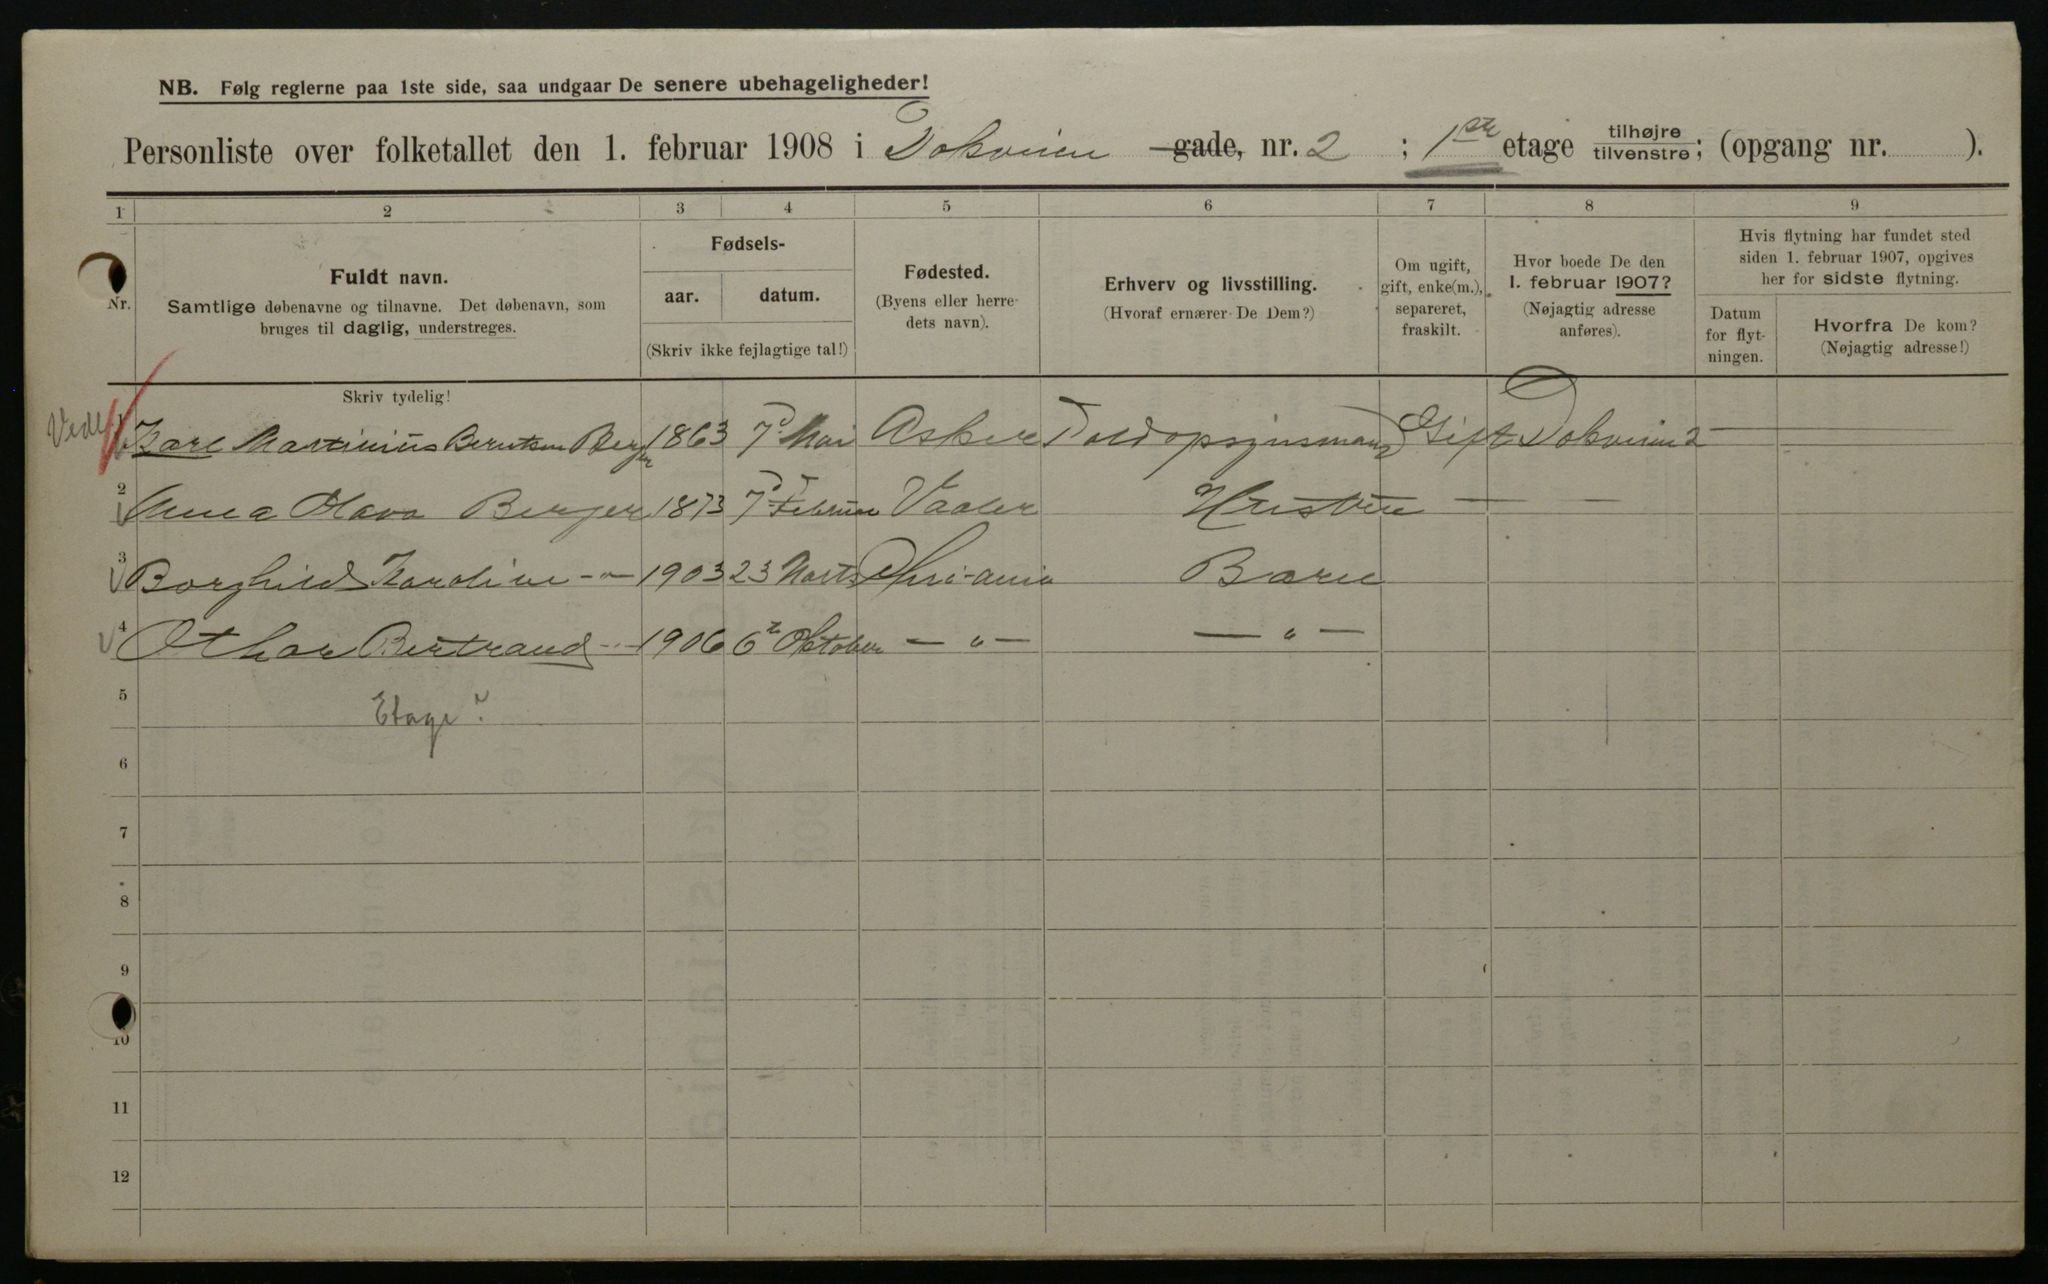 NB. Følg reglerne paa 1ste side, saa undgaar De senere ubehageligheder!
Personliste over folketallet den 1. februar 1908 i Dokveien gade, nr. 2 ; 1ste etage tilhøjre tilvenstre; (opgang nr. ).
1 2 3 4 5 6 7 8 9
Nr.
Fuldt navn.
Samtlige døbenavne og tilnavne. Det døbenavn, som
bruges til daglig, understreges.
Fødsels-
aar. datum.
(Skriv ikke fejlagtige tal!)
Fødested.
(Byens eller herre-
dets navn).
Erhverv og livsstilling.
(Hvoraf ernærer De Dem?)
Om ugift,
gift, enke(m.),
separeret,
fraskilt.
Hvor boede De den
1. februar 1907?
(Nøjagtig adresse
anføres).
Hvis flytning har fundet sted
siden 1. februar 1907, opgives
her for sidste flytning.
Datum
for flyt-
ningen.
Hvorfra De kom?
(Nøjagtig adresse!)
Skriv tydelig!
1 Karl Martinius Berntsen Berger 1863 7d Mai Asker Toldopsynsmand Gift Dokveien 2 —
2 Anna Olava Berger 1873 7d Februar Vaaler Hustru — —
3 Borghild Karoline -"- 1903 23 Marts Christiania Barn
4 Othar Bertrand -"- 1906 6te Oktober — " — — " —
5
Etage?
6
7
8
9
10
11
12